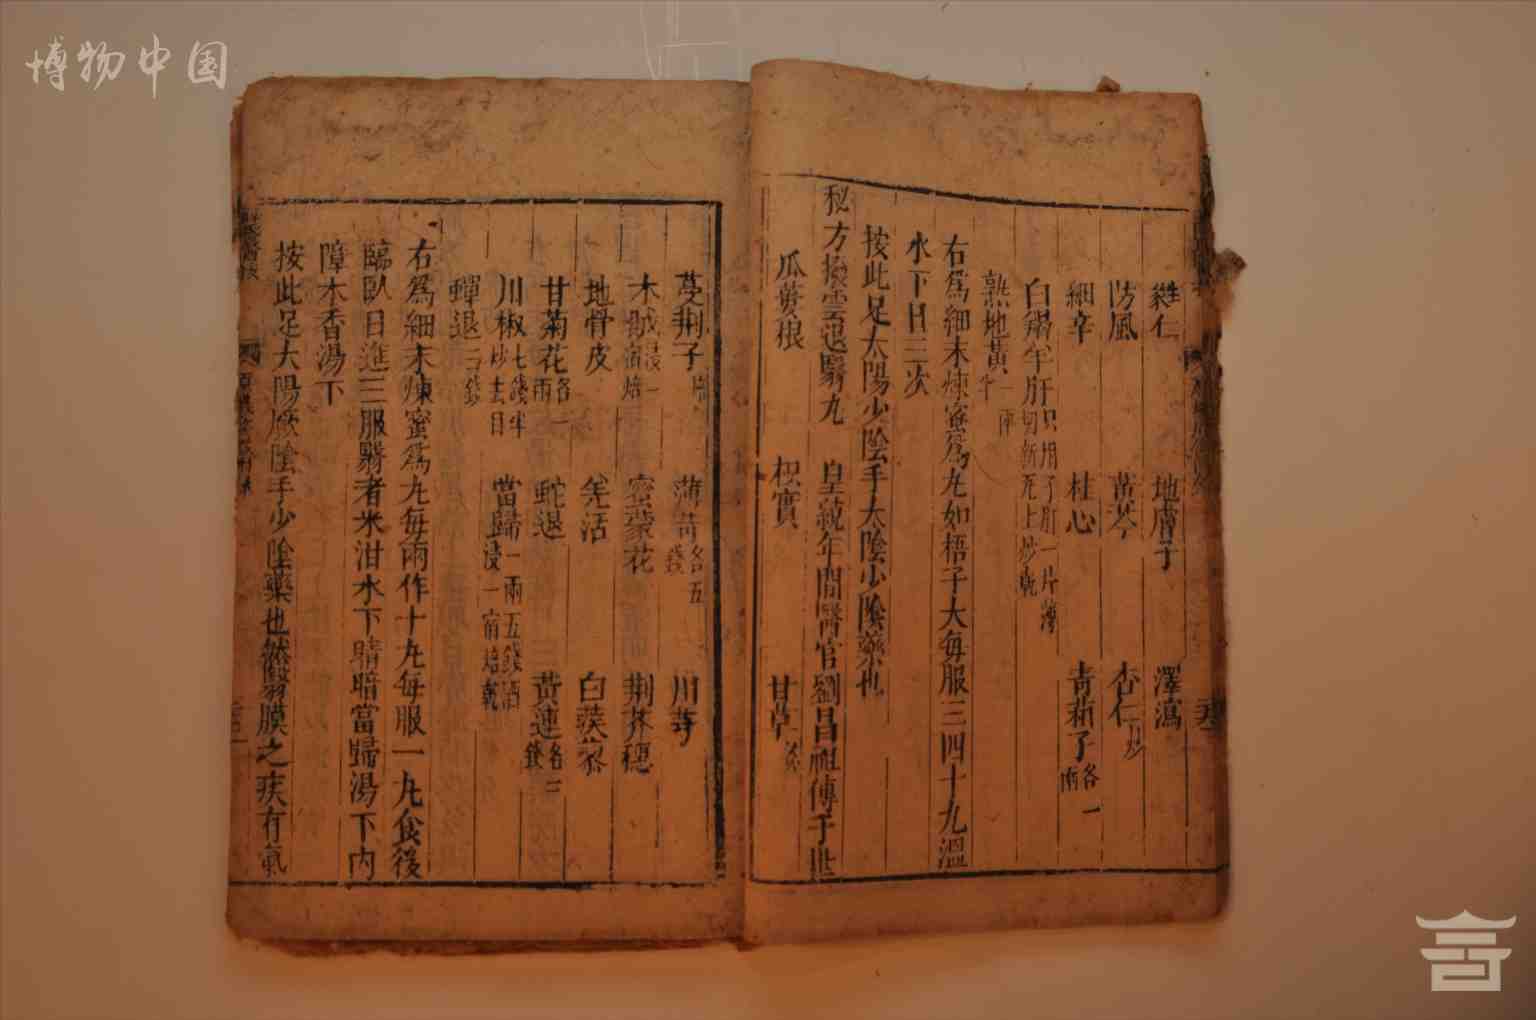 博物中国
蕤仁 地膚子 澤瀉
防風 黄芩 杏仁炒
細辛 桂心 青葙子各一兩
白羯羊肝只用子肝一片薄切新瓦上炒乾
熟地黄一兩半
右為細末煉蜜為丸如梧子大每服三四十丸温
水下日三次
按此足太陽少陰手太陰少陰藥也
秘方撥雲退翳丸 皇統年間醫官劉昌祖傳于世
瓜蔞根 枳實 甘草炙
蔓荆子 蒲荷各五錢 川芎
木賊浸一宿焙 密蒙花 荆芥穗
地骨皮 羌活 白蒺藜
甘菊花各一兩 蛇退 黄連各三錢
川椒七錢半炒去目 當歸一兩五錢酒浸一宿焙乾
蟬退三錢
右為細末煉蜜為丸每兩作十丸每服一丸食後
臨臥日進三服翳者米泔水下睛暗當歸湯下内
障木香湯下
按此足太陽厥陰手少陰藥也然翳膜之疾有氣